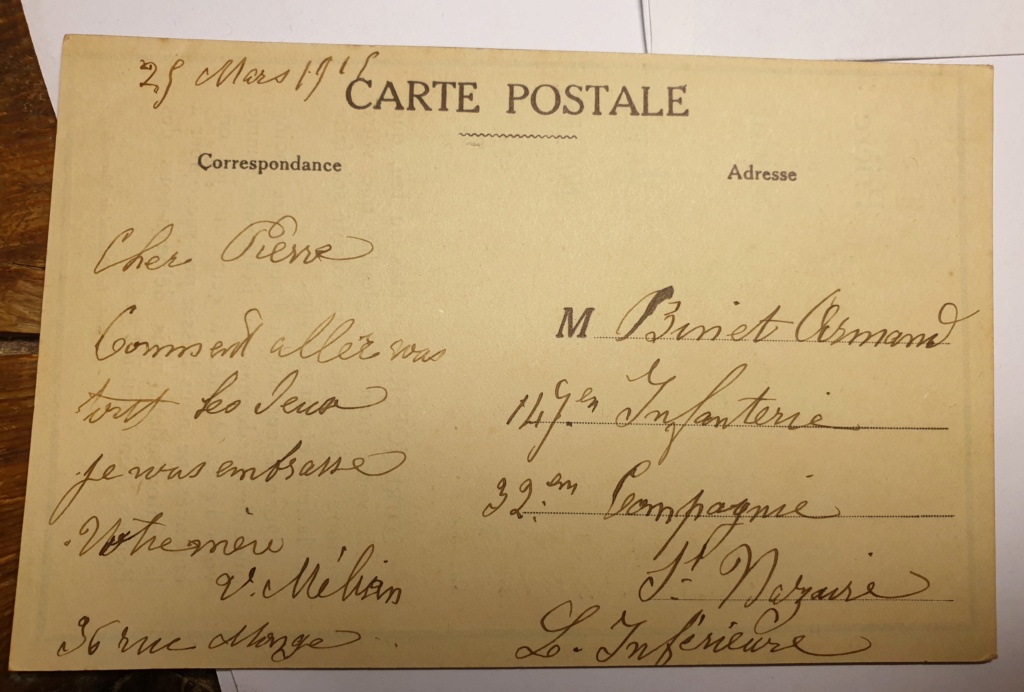 25 Mars 1915
CARTE POSTALE
Correspondance
Cher Pierre
Comment aller vous
tout les deux
je vous embrasse
Votre mère
Vve
36 rue Monge
Adresse
M Binet Armand
147.em Infanterie
32.em Compagnie
St. Nazaire
L. Inférieure